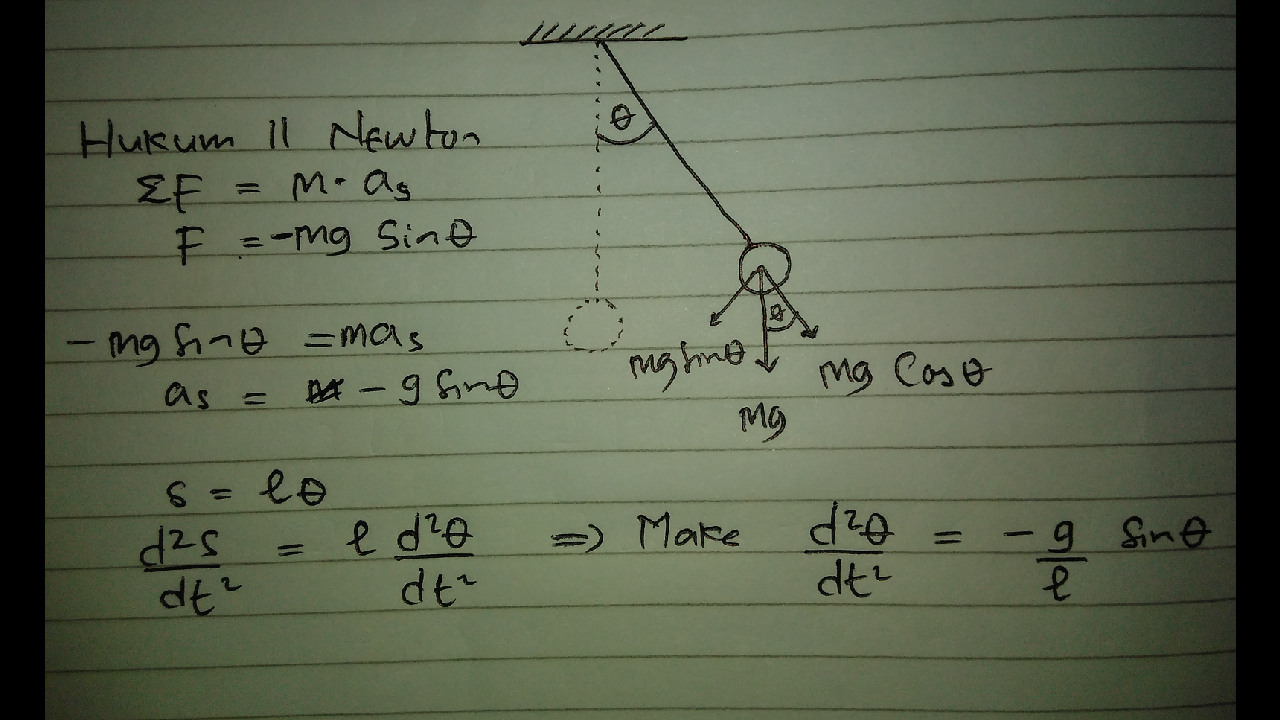 θ
Hukum II Newton
ΣF = m · aₛ
F = -mg Sinθ
- mg Sinθ = maₛ
aₛ = - g Sinθ
θ
mg Sinθ
mg Cosθ
mg
s = ℓθ
d²s/dt² = ℓ d²θ/dt² => Make d²θ/dt² = - g/ℓ Sinθ